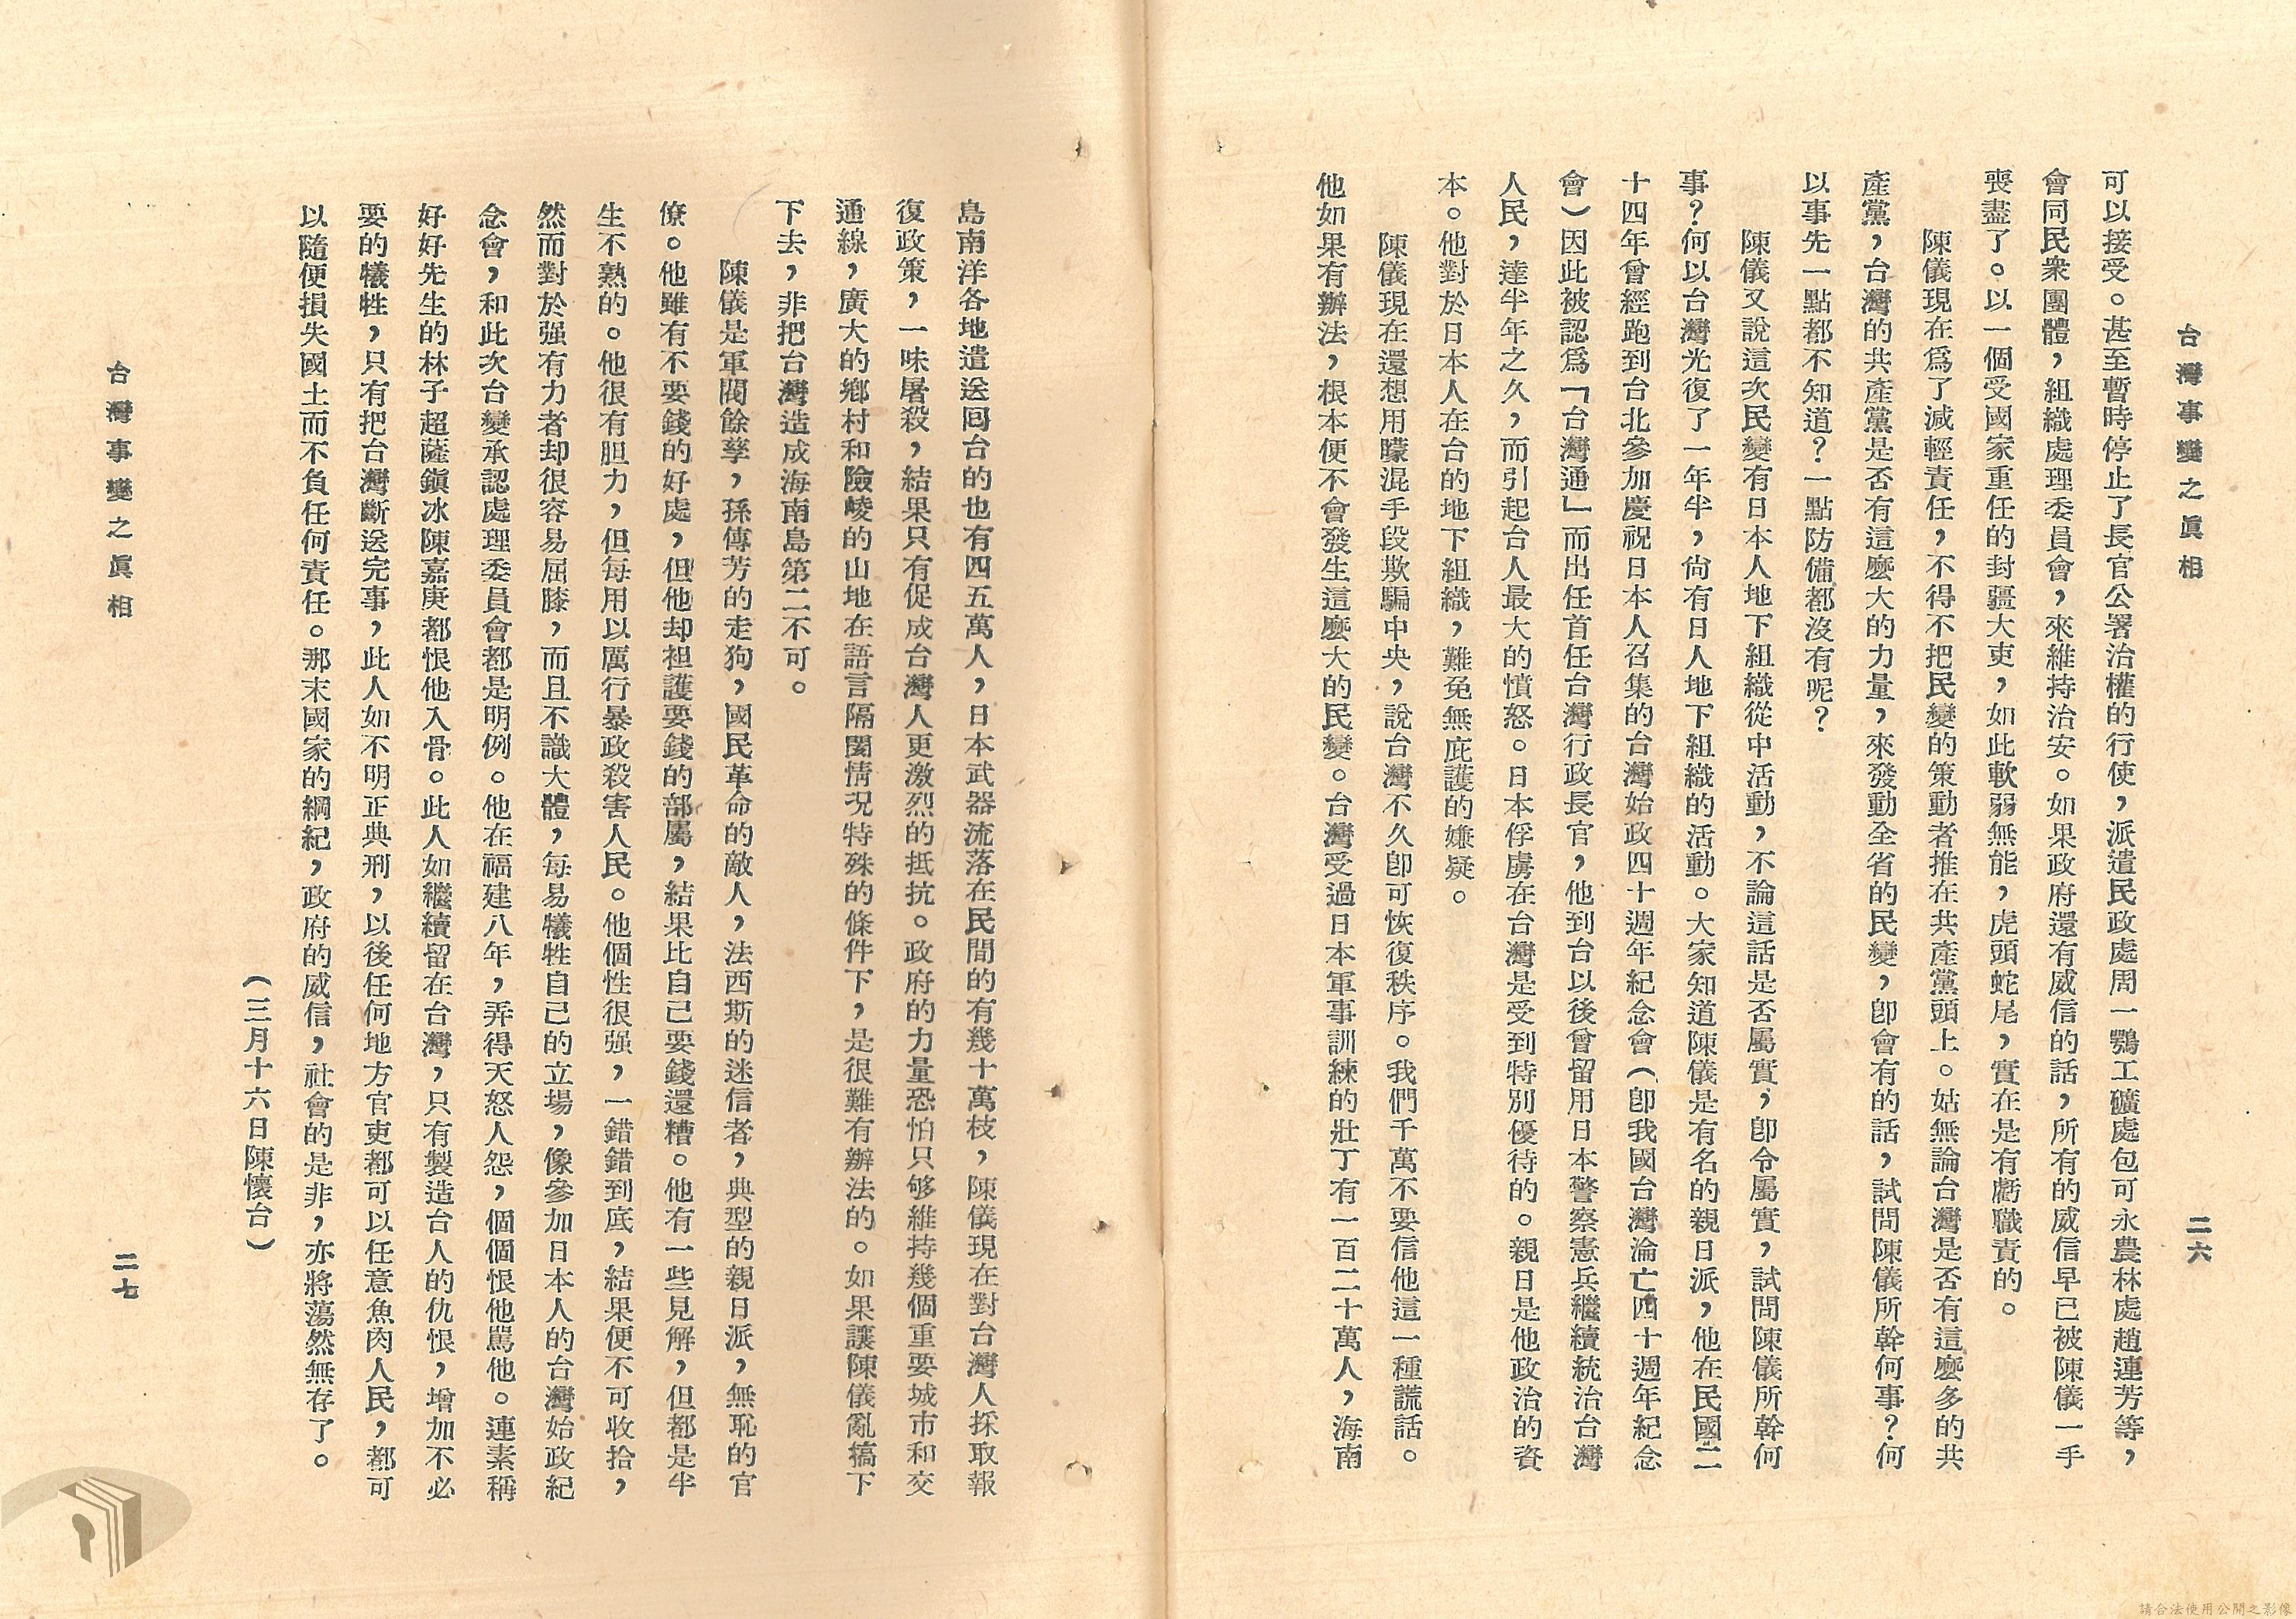 台灣事變之眞相
二六
可以接受。甚至暫時停止了長官公署治權的行使，派遣民政處周一鶚工礦處包可永農林處趙連芳等，
會同民衆團體，組織處理委員會，來維持治安。如果政府還有威信的話，所有的威信早已被陳儀一手
喪盡了。以一個受國家重任的封疆大吏，如此軟弱無能，虎頭蛇尾，實在是有虧職責的。
陳儀現在爲了減輕責任，不得不把民變的策動者推在共產黨頭上。姑無論台灣是否有這麽多的共
產黨，台灣的共產黨是否有這麽大的力量，來發動全省的民變，卽會有的話，試問陳儀所幹何事？何
以事先一點都不知道？一點防備都沒有呢？
陳儀又說這次民變有日本人地下組織從中活動，不論這話是否屬實，卽令屬實，試問陳儀所幹何
事？何以台灣光復了一年半，尙有日人地下組織的活動。大家知道陳儀是有名的親日派，他在民國二
十四年曾經跑到台北參加慶祝日本人召集的台灣始政四十週年紀念會（卽我國台灣淪亡四十週年紀念
會）因此被認爲「台灣通」而出任首任台灣行政長官，他到台以後曾留用日本警察憲兵繼續統治台灣
人民，達半年之久，而引起台人最大的憤怒。日本俘虜在台灣是受到特別優待的。親日是他政治的資
本。他對於日本人在台的地下組織，難免無庇護的嫌疑。
陳儀現在還想用矇混手段欺騙中央，說台灣不久卽可恢復秩序。我們千萬不要信他這一種謊話。
他如果有辦法，根本便不會發生這麽大的民變。台灣受過日本軍事訓練的壯丁有一百二十萬人，海南
島南洋各地遣送囘台的也有四五萬人，日本武器流落在民間的有幾十萬枝，陳儀現在對台灣人採取報
復政策，一味屠殺，結果只有促成台灣人更激烈的抵抗。政府的力量恐怕只够維持幾個重要城市和交
通線，廣大的鄉村和險峻的山地在語言隔閡情況特殊的條件下，是很難有辦法的。如果讓陳儀亂搞下
下去，非把台灣造成海南島第二不可。
陳儀是軍閥餘孽，孫傳芳的走狗，國民革命的敵人，法西斯的迷信者，典型的親日派，無恥的官
僚。他雖有不要錢的好處，但他却袒護要錢的部屬，結果比自己要錢還糟。他有一些見解，但都是半
生不熟的。他很有胆力，但每用以厲行暴政殺害人民。他個性很强，一錯錯到底，結果便不可收拾，
然而對於强有力者却很容易屈膝，而且不識大體，每易犧牲自己的立場，像參加日本人的台灣始政紀
念會，和此次台變承認處理委員會都是明例。他在福建八年，弄得天怒人怨，個個恨他罵他。連素稱
好好先生的林子超薩鎭冰陳嘉庚都恨他入骨。此人如繼續留在台灣，只有製造台人的仇恨，增加不必
要的犧牲，只有把台灣斷送完事，此人如不明正典刑，以後任何地方官吏都可以任意魚肉人民，都可
以隨便損失國土而不負任何責任。那末國家的綱紀，政府的威信，社會的是非，亦將蕩然無存了。
（三月十六日陳懷台）
台灣事變之眞相
二七
請合法使用公開之影像